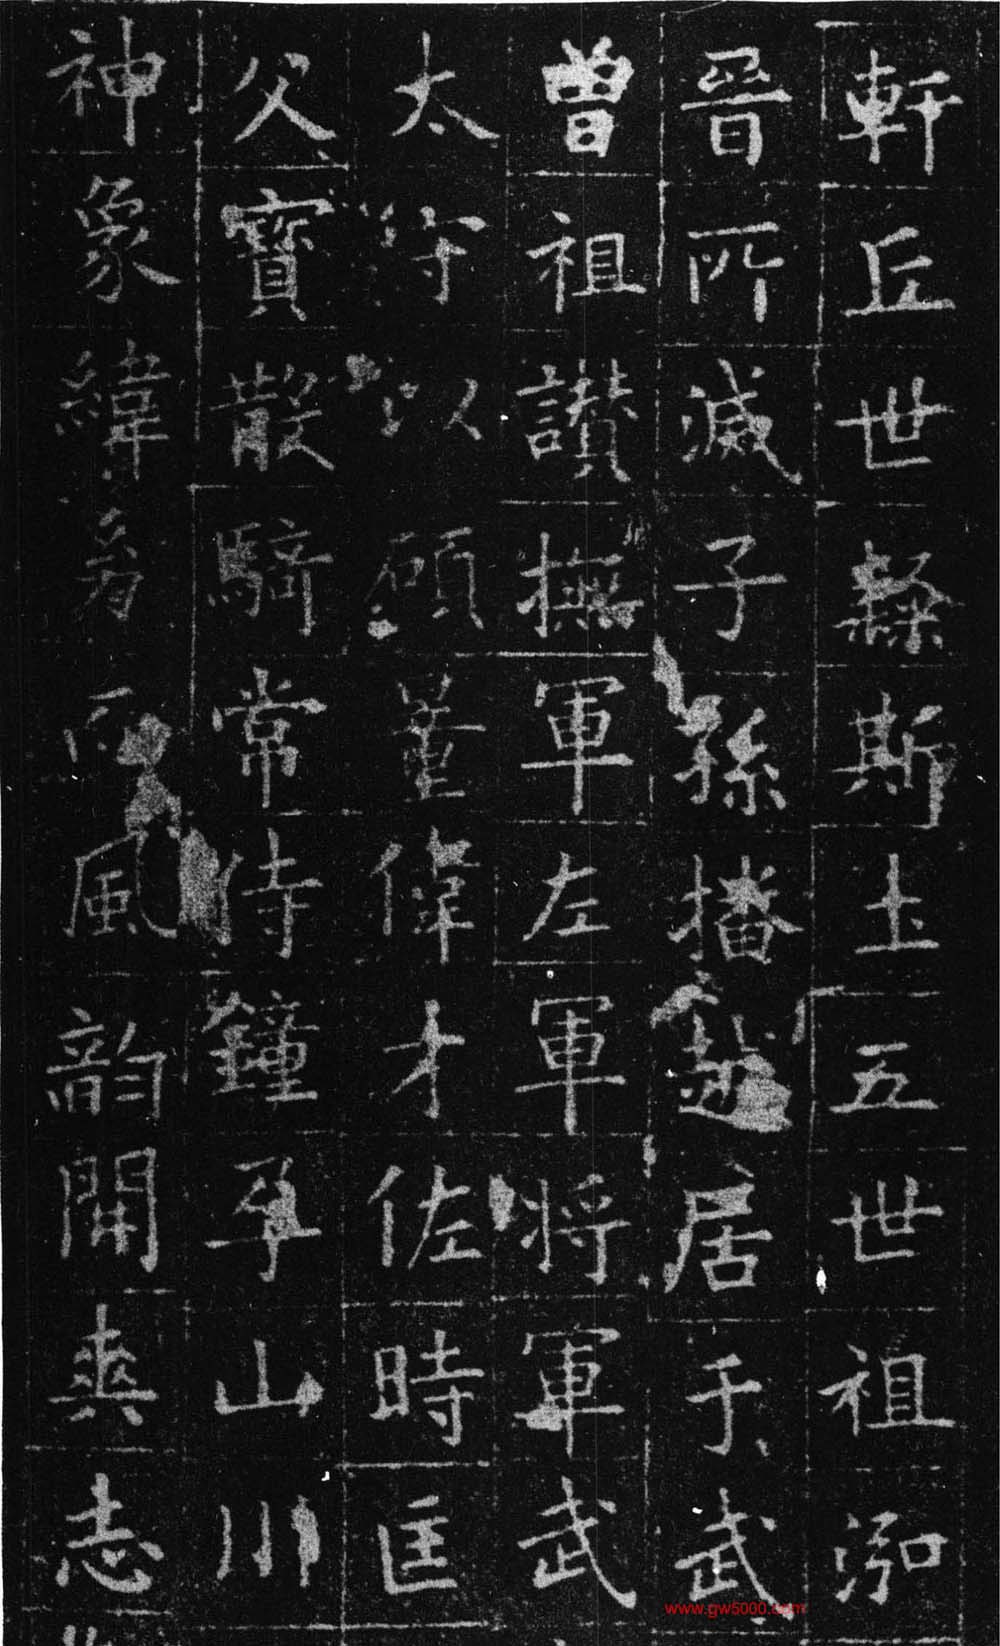 軒丘世斯土五世祖泓
晉所滅子孫播越居于武
曾祖讃撫軍左軍將軍武
太守以碩量偉才佐時匡
父寶散騎常侍鐘孕山川
神象緯風韻開爽志
www.gw5000.com